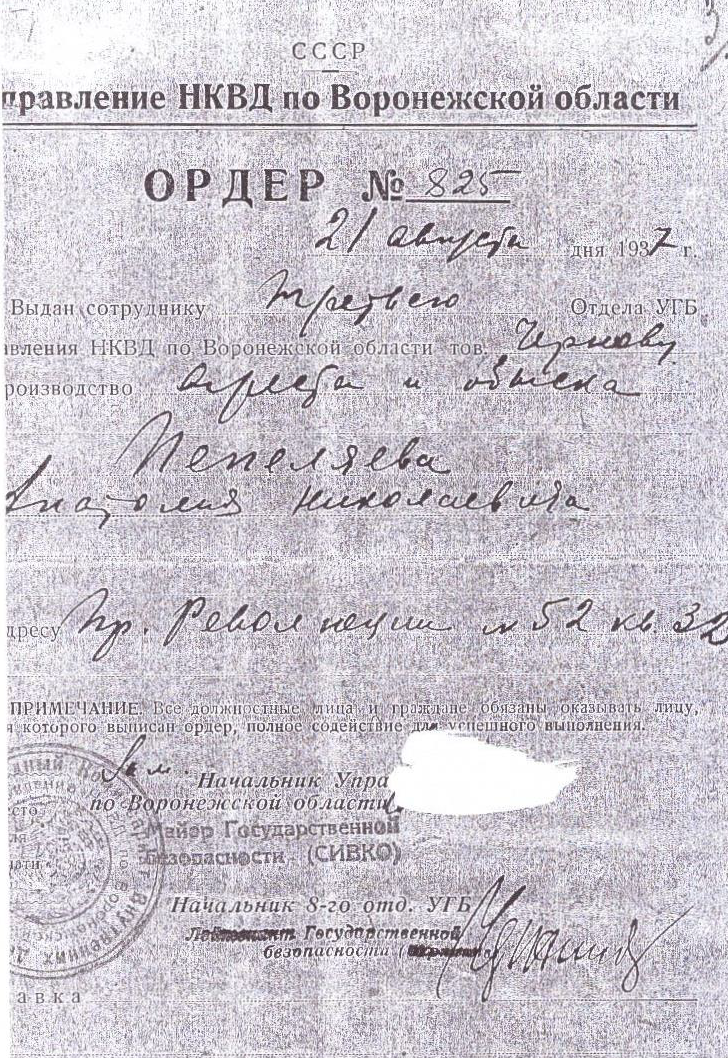 СССР
правление НКВД по Воронежской области
ОРДЕР № 825
21 августа дня 1937 г.
Выдан сотруднику третьего Отдела УГБ
авления НКВД по Воронежской области тов. Чернову
роизводство ареста и обыска
Пепеляева
Анатолия Николаевича
дресу Пр. Революции № 52 кв. 32
ПРИМЕЧАНИЕ. Все должностные лица и граждане обязаны оказывать лицу,
я которого выписан ордер, полное содействие для успешного выполнения.
Зам.
Начальник Упра
по Воронежской области
Майор Государственной
Безопасности (СИВКО)
Начальник 8-го отд. УГБ
Лейтенант Государственной
безопасности (
авка